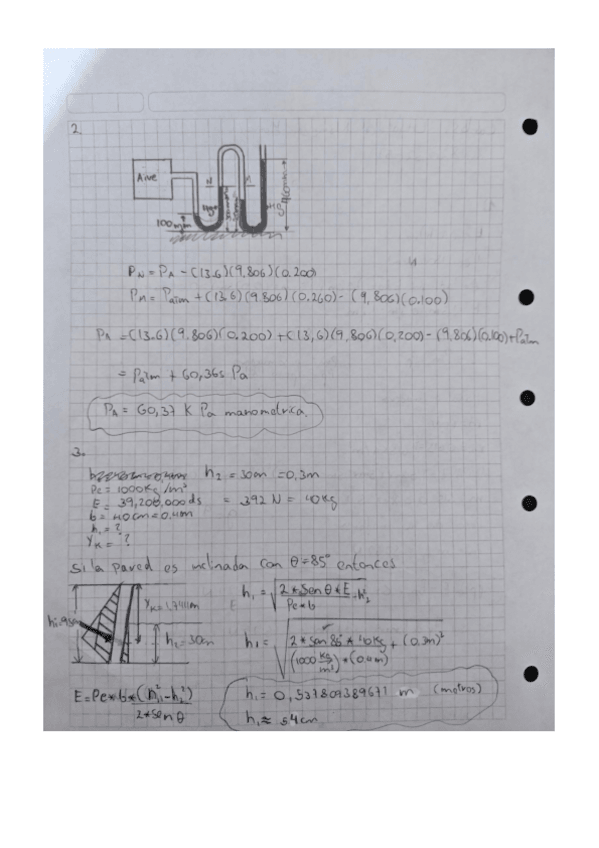 2.
Aire
100mm
P_N = P_A - (13.6)(9,806)(0.200)
P_M = P_atm + (13.6)(9.806)(0.260) - (9,806)(0.100)
P_A = (13.6)(9.806)(0.200) + (13,6)(9,806)(0,200) - (9,806)(0.100) + P_atm
= P_atm + 60,365 Pa
P_A = 60,37 K Pa manometrica.
3.
h₂ = 30cm = 0,3m
Pe = 1000Kg/m³
E = 39,200,000 ds = 392 N = 40Kg
b = 40cm = 0,4m
h₁ = ?
Y_K = ?
Si la pared es inclinada con θ = 85° entonces
h₁ = √ 2 * Sen θ * E / Pe * b - h₂²
E
h₂ = 30cm
h₁ = √ 2 * sen 85° * 40Kg / (1000 Kg/m³) * (0,4m) + (0,3m)²
E = Pe * b * (h₁² - h₂²) / 2 * Sen θ
h₁ = 0,537809389671 m (metros)
h₁ ≈ 54cm